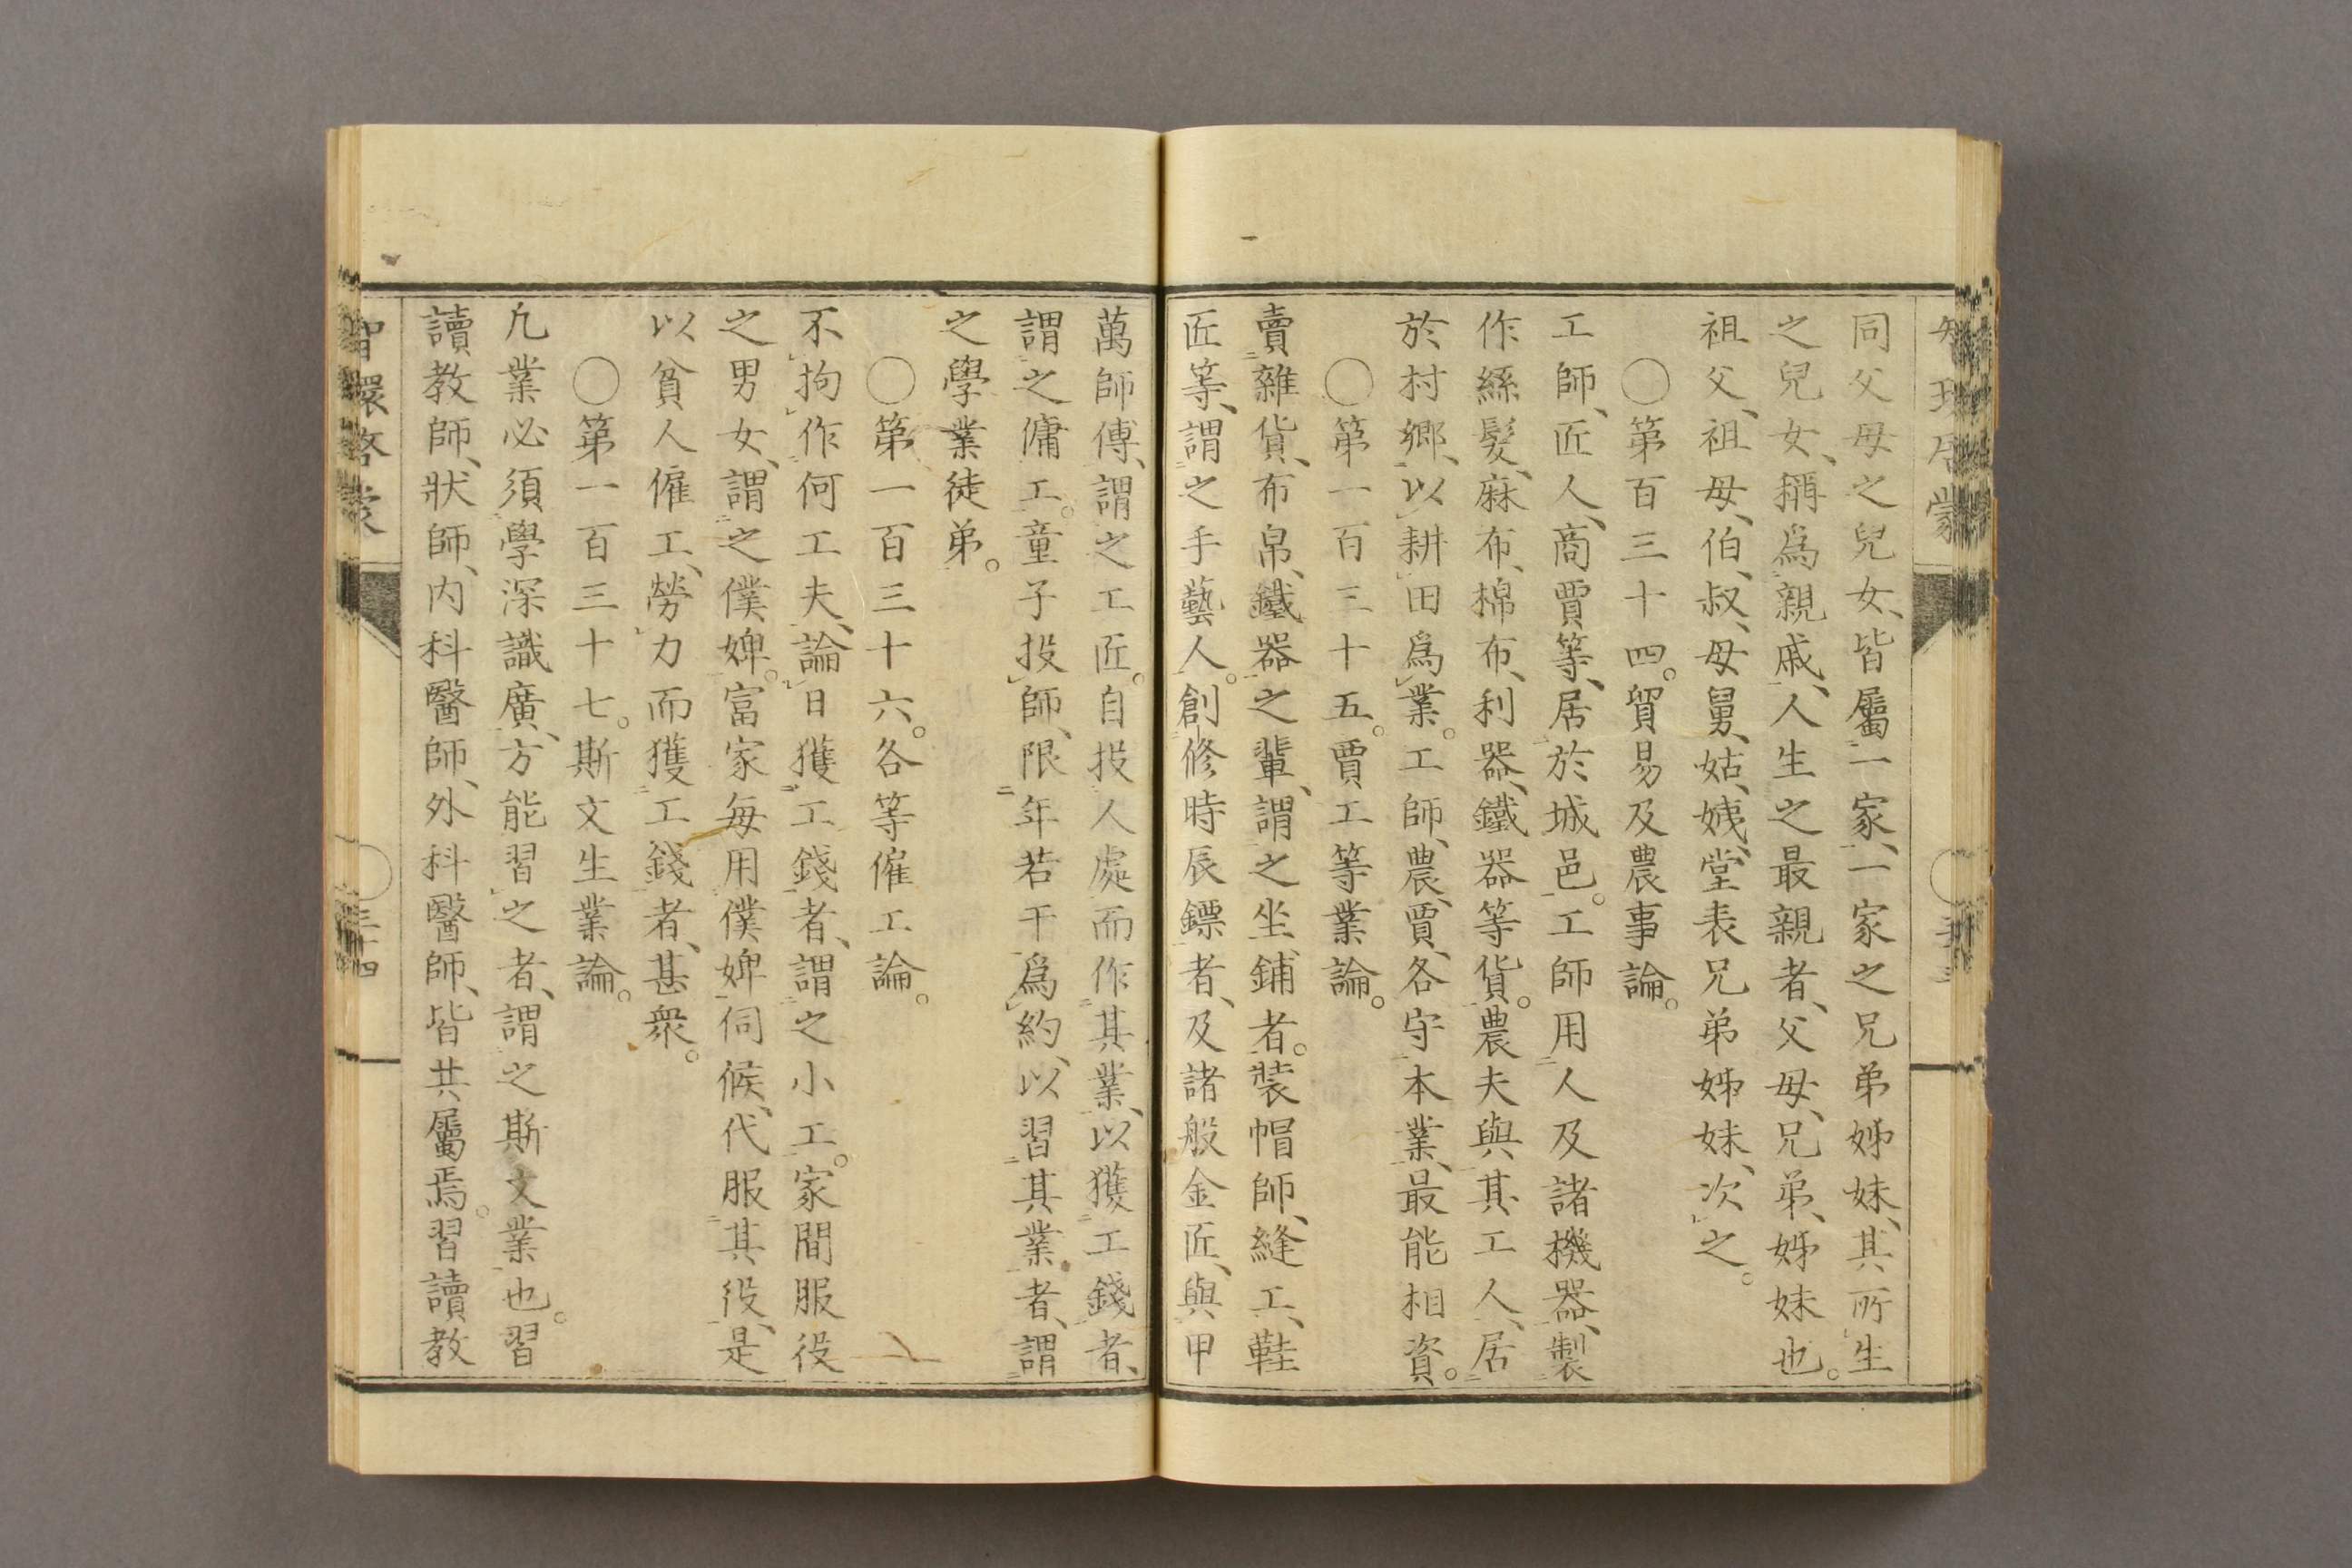 同父母之兒女、皆屬一家、一家之兄弟姊妹、其所生
之兒女、稱爲親戚、人生之最親者、父母、兄弟、姊妹也。
祖父、祖母、伯、叔、母舅、姑、姨、堂表兄弟姊妹、次之。
〇第百三十四。貿易及農事論。
工師、匠人、商賈等、居於城邑。工師用人及諸機器、製
作絲髮、麻布、棉布、利器、鐵器等貨。農夫與其工人、居
於村鄉、以耕田爲業。工師、農、賈、各守本業、最能相資。
〇第一百三十五。賈工等業論。
賣雜貨、布帛、鐵器之輩、謂之坐鋪者。裝帽師、縫工、鞋
匠等、謂之手藝人。創修時辰鏢者、及諸般金匠、與甲
萬師傅、謂之工匠。自投人處而作其業、以獲工錢者、
謂之傭工。童子投師、限年若干爲約、以習其業者、謂
之學業徒弟。
〇第一百三十六。各等僱工論。
不拘作何工夫、論日獲工錢者、謂之小工。家間服役
之男女、謂之僕婢。富家每用僕婢伺候、代服其役、是
以貧人僱工、勞力而獲工錢者、甚衆。
〇第一百三十七。斯文生業論。
凢業必須學深識廣、方能習之者、謂之斯文業也。習
讀教師、狀師、內科醫師、外科醫師、皆共屬焉。習讀教
智環啓蒙
〇三十四